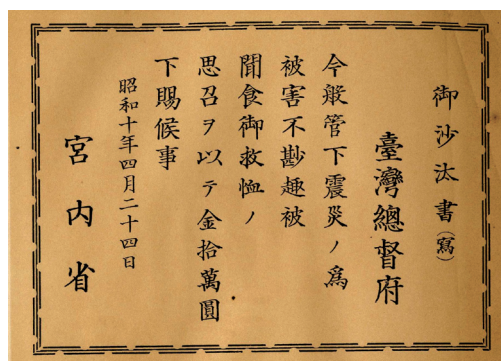 御沙汰書(寫)
臺灣總督府
今般管下震災ノ為
被害不尠趣被
聞食御救恤ノ
思召ヲ以テ金拾萬圓
下賜候事
昭和十年四月二十四日
宮内省